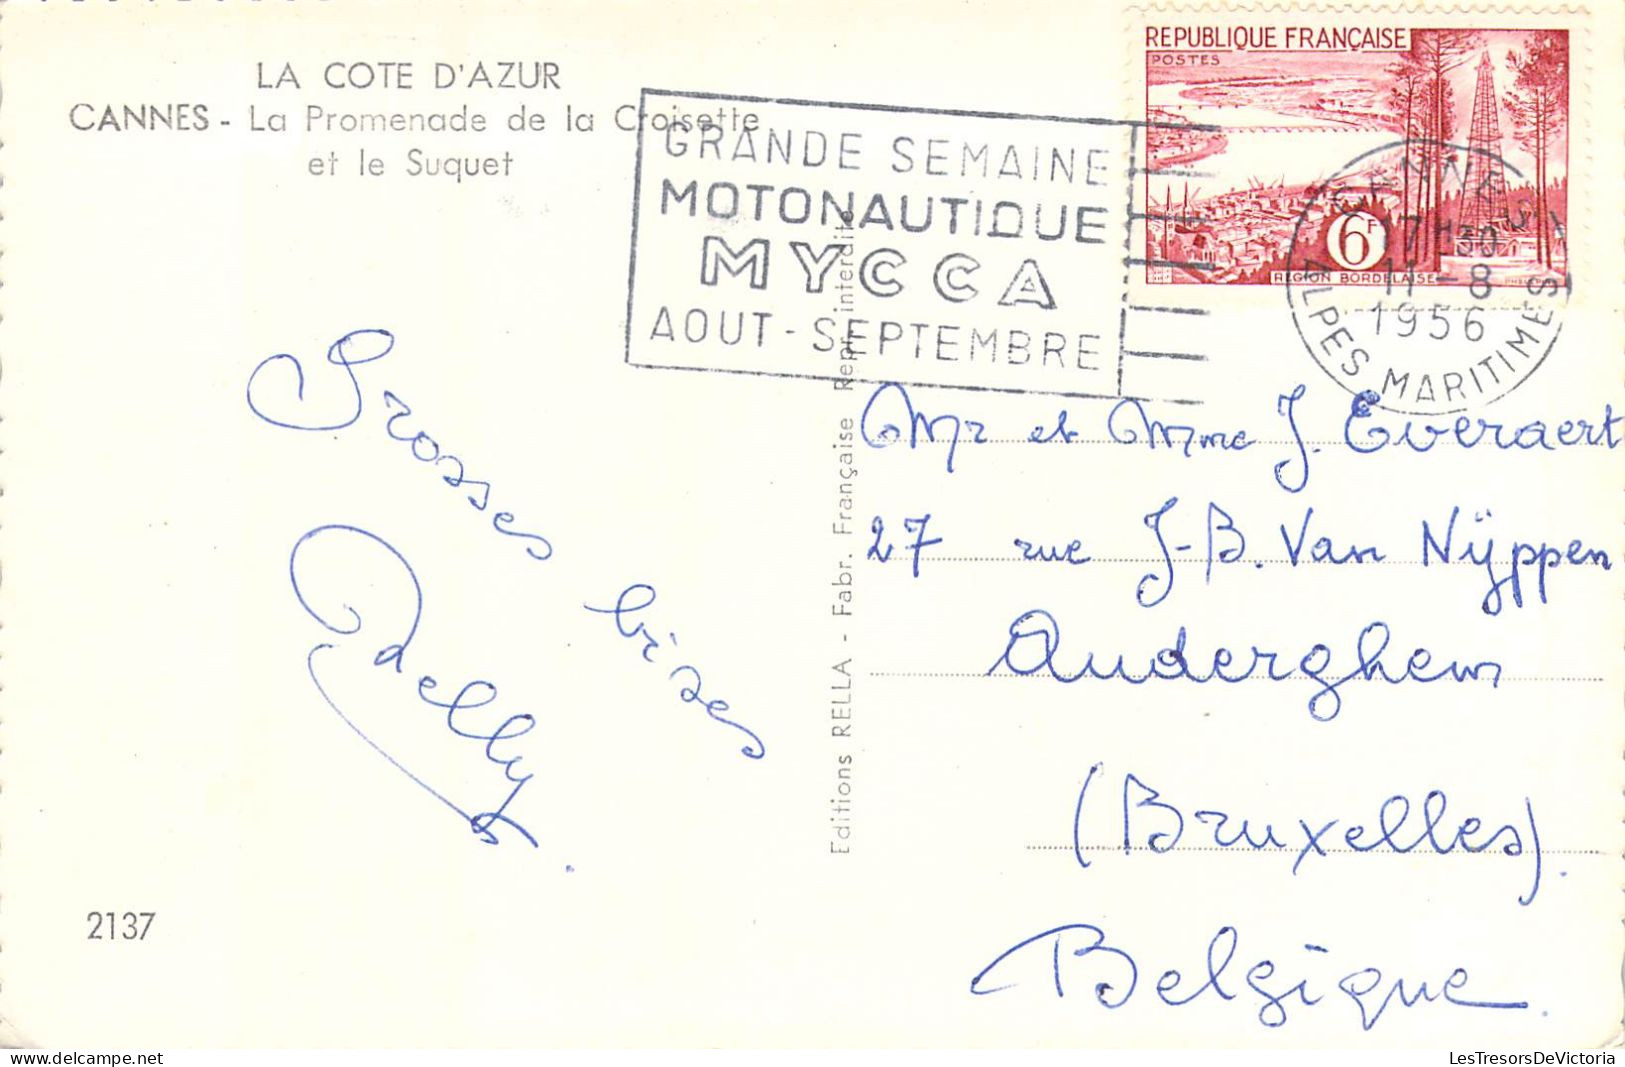 LA COTE D'AZUR
CANNES - La Promenade de la Croisette
et le Suquet
GRANDE SEMAINE
MOTONAUTIQUE
MYCCA
AOUT - SEPTEMBRE
REPUBLIQUE FRANÇAISE
POSTES
6F
REGION BORDELAISE
CANNES
17H30
11-8
1956
ALPES MARITIMES
Grosses bises
Editions RELLA - Fabr. Française Repr. interdite
Mr et Mme J. Everaert
27 rue J-B. Van Nÿppen
Auderghem
(Bruxelles).
Belgique.
2137
LesTresorsDeVictoria